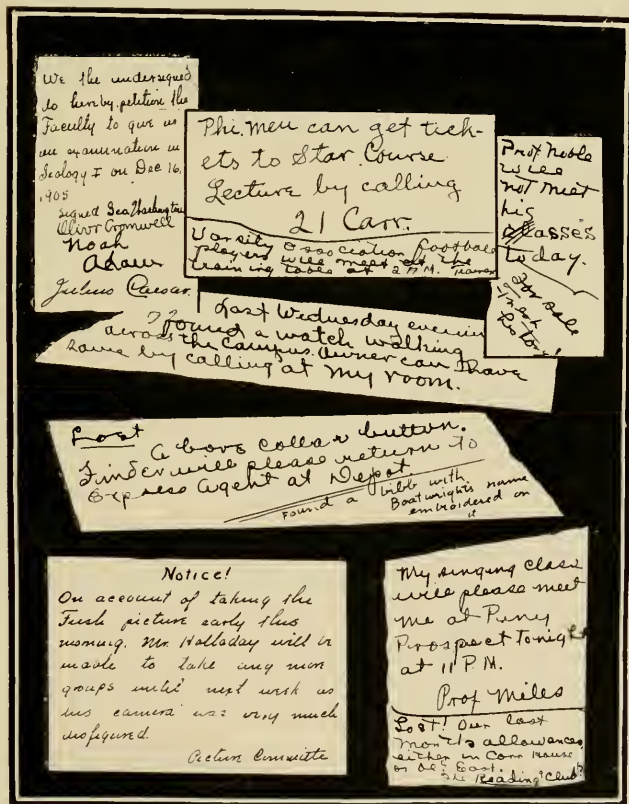 We the undersigned
do hereby petition the
Faculty to give us
an examination in
Geology I on Dec 16,
1905
signed Geo Washington
Oliver Cromwell
Noah
Adam
Julius Caesar.
Phi. men can get tick-
ets to Star Course
Lecture by calling
21 Carr.
Varsity Association football
players will meet at the
training table at 2 P.M.
Prof Noble
will
not meet
his
classes
today.
For sale
history!
Last Wednesday evening
I found a watch walking
across the campus. Owner can have
same by calling at my room.
Lost
A boys collar button.
Finder will please return to
Express Agent at Depot
Found a bibb with
Boatwrights name
embroidered on
it
Notice!
On account of taking the
Fresh picture early this
morning. Mr. Holladay will be
unable to take any more
groups until next week as
his camera was very much
disfigured.
Picture Committee
My singing class
will please meet
me at Piney
Prospect tonight
at 11 P.M.
Prof Miles
Lost! Our last
month's allowances
either in Carr House
or Old East.
The Reading Club?